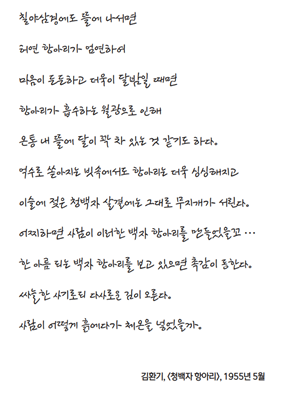 칠야삼경에도 뜰에 나서면
허연 항아리가 엄연하여
마음이 든든하고 더욱이 달밤일 때면
항아리가 흡수하는 월광으로 인해
온통 내 뜰에 달이 꽉 차 있는 것 같기도 하다.
억수로 쏟아지는 빗속에서도 항아리는 더욱 싱싱해지고
이슬에 젖은 청백자 살결에는 그대로 무지개가 서린다.
어찌하면 사람이 이러한 백자 항아리를 만들었을꼬 …
한 아름 되는 백자 항아리를 보고 있으면 촉감이 동한다.
싸늘한 사기로되 다사로운 김이 오른다.
사람이 어떻게 흙에다가 체온을 넣었을까.
김환기, 〈청백자 항아리〉, 1955년 5월